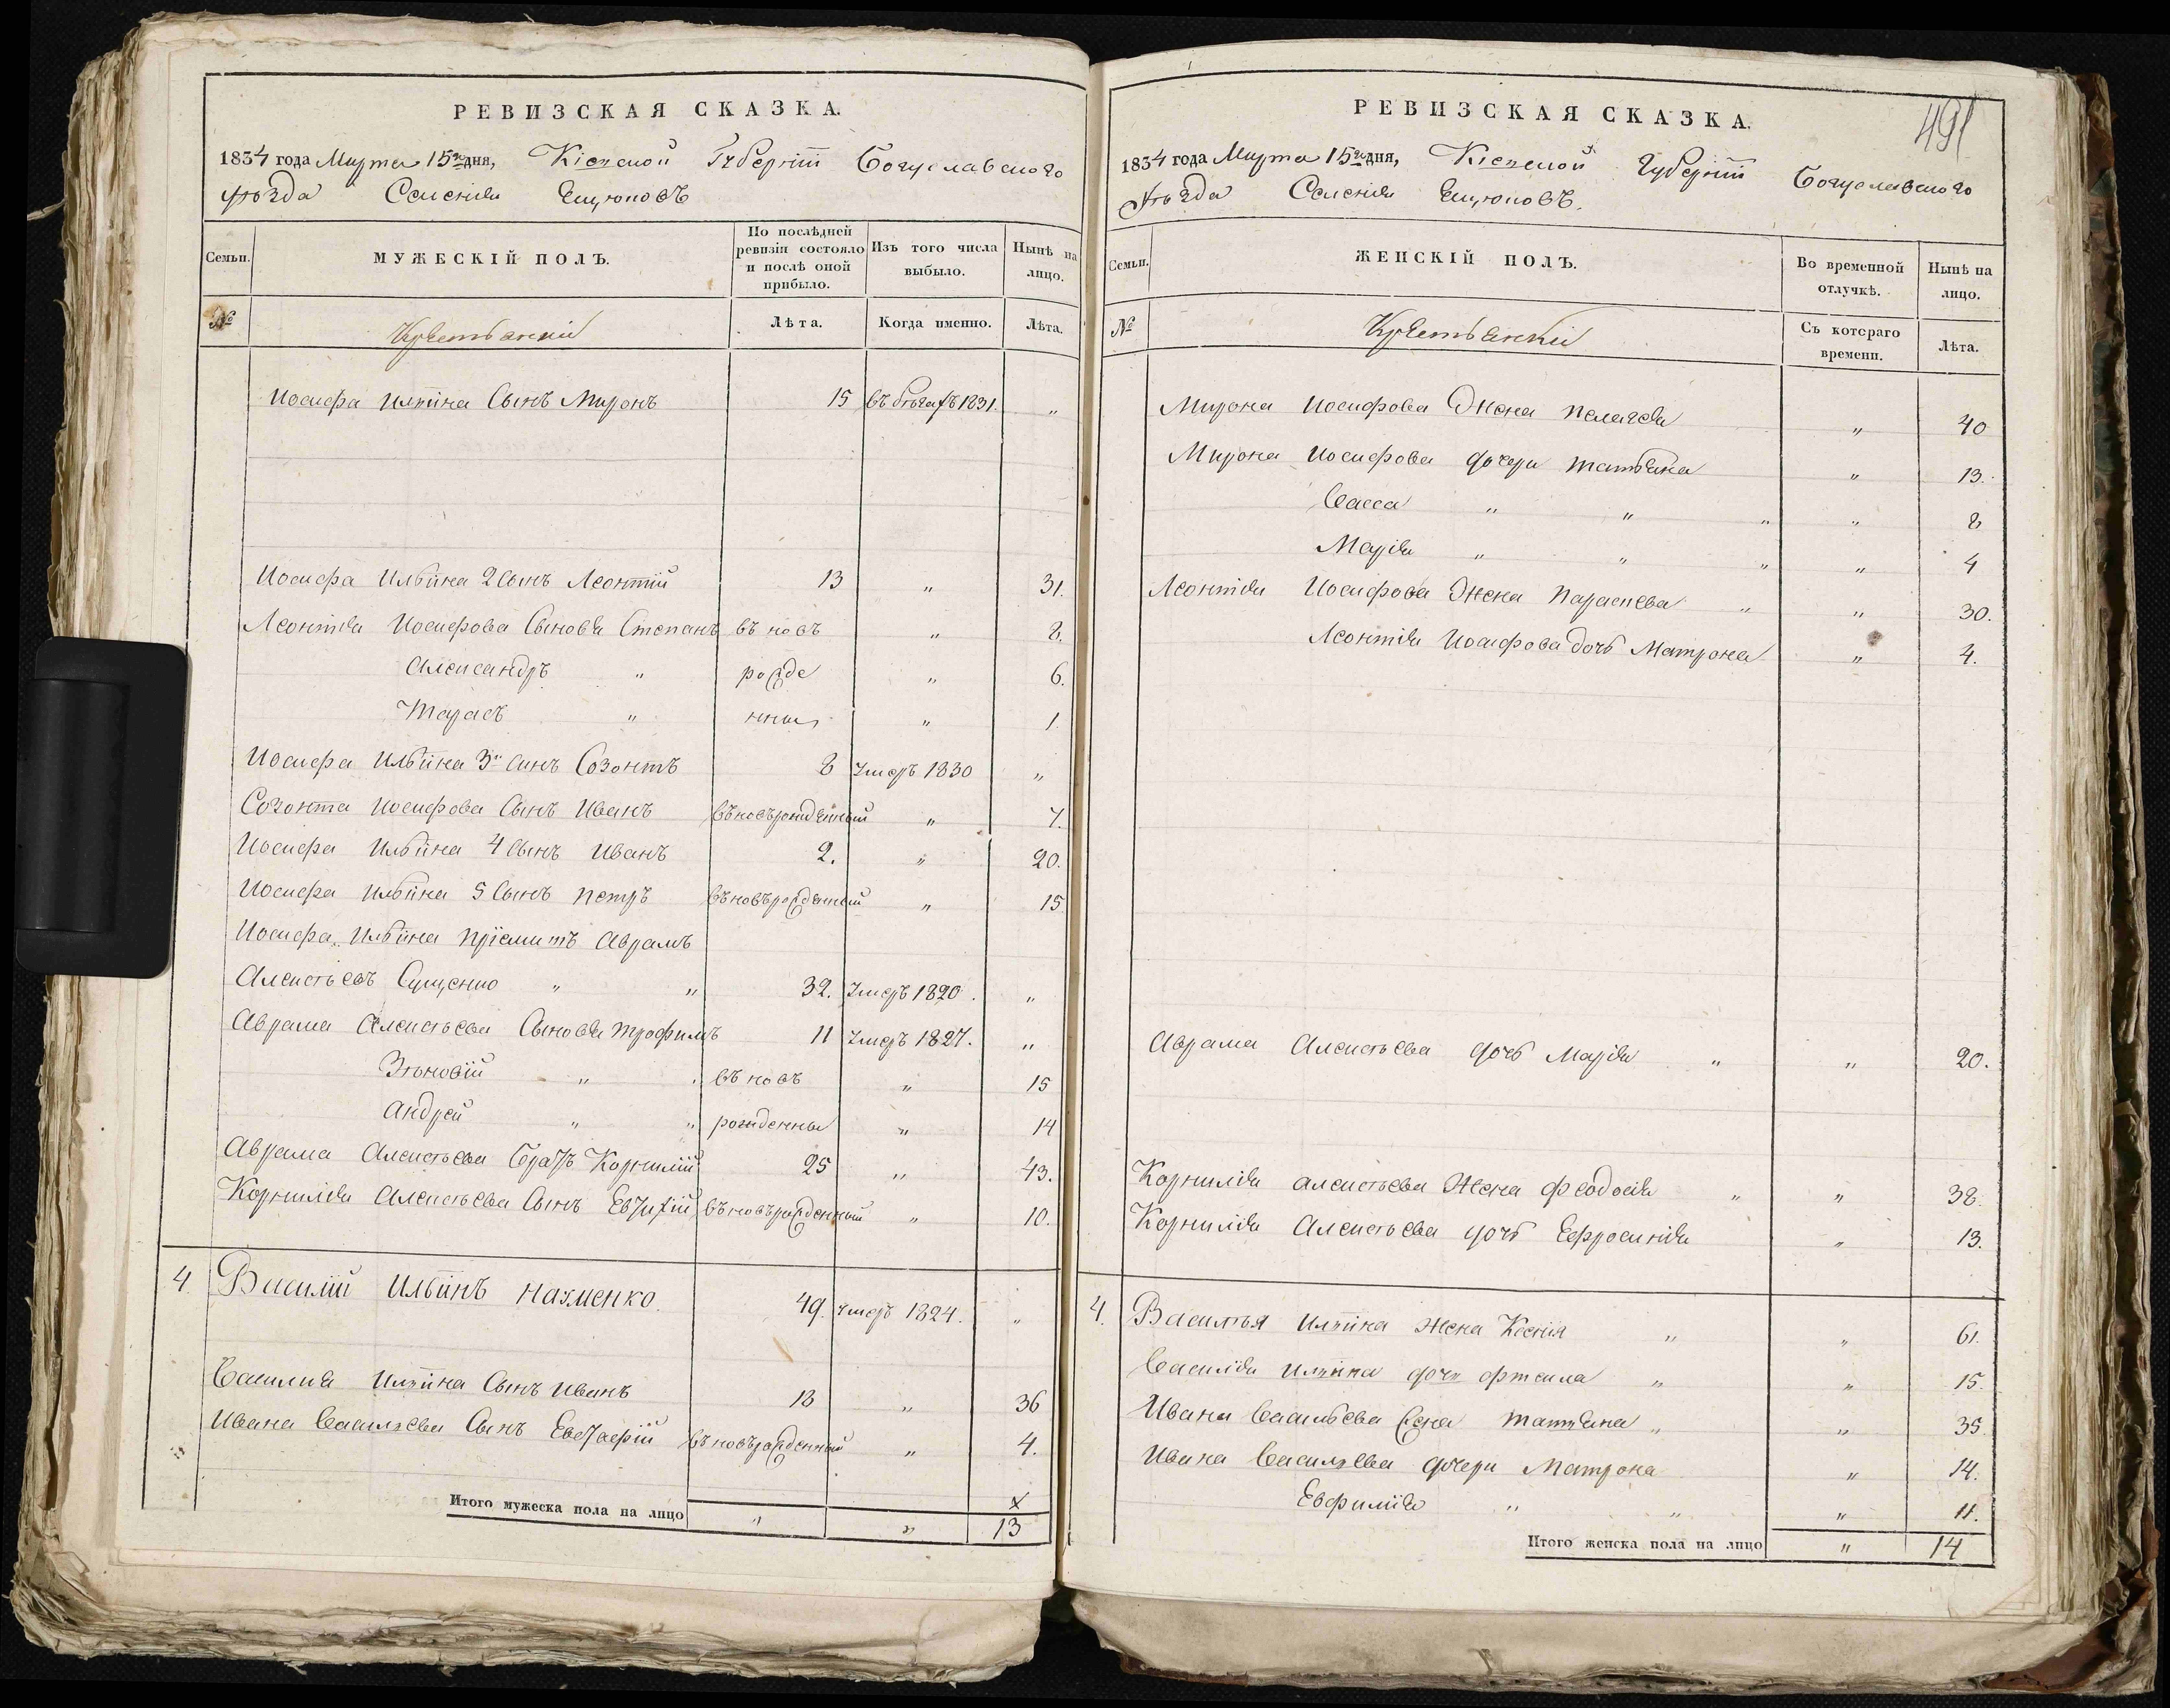 РЕВИЗСКАЯ СКАЗКА.
1834 года Марта 15го дня, Кіевской Губерніи Богуславского
уѣзда Селенія
Семьи.
МУЖЕСКІЙ ПОЛЪ.
По послѣдней ревизіи состояло и послѣ оной прибыло.
Изъ того числа выбыло.
Нынѣ на лицо.
№
Лѣта.
Когда именно.
Лѣта.
Иосифа Илїина Сынъ Миронъ 15 въ бѣгахъ 1831. „
Иосифа Ильїина 2 Сынъ Леонтїй 13 „ 31.
Леонтія Иосифова Сыновья Степанъ въ новъ „ 8.
Александръ „ рожде „ 6.
Тарасъ „ нные „ 1
Иосифа Ильїина 3й Синъ Созонтъ 8 Умеръ 1830 „
Созонта Иосифова Сынъ Иванъ въновърожденный „ 7.
Иосифа Ильїина 4 Сынъ Иванъ 2. „ 20.
Иосифа Ильїина 5 Сынъ Петръ въновърожденный „ 15
Иосифа Ильїина Прїемитъ Аврамъ
Алексѣевъ Сущенко „ „ 32. Умеръ 1820. „
Аврама Алексѣева Сыновья Трофимъ 11 Умеръ 1827. „
Зѣновїй „ въ новъ „ 15
Андрей „ „ рожденны „ 14
Аврама Алексѣева Братъ Корнилїй 25 „ 43.
Корнилія Алексѣева Сынъ Евтихїй въновърожденный „ 10.
4. Василїй Ильїинъ Нахменко. 49. Умеръ 1824. „
Василия Илъїина Сынъ Иванъ 18 „ 36
Ивана Василъева Сынъ Евстафїй въновърожденный „ 4.
х
Итого мужеска пола на лицо „ „ 13
РЕВИЗСКАЯ СКАЗКА.
491
1834 года Марта 15го дня, Кіевской Губерніи Богуславского
уѣзда Селенія
Семьи.
ЖЕНСКІЙ ПОЛЪ.
Во временной отлучкѣ.
Нынѣ на лицо.
№
Съ котораго времени.
Лѣта.
Мирона Иосифова Жена Пелагея „ 40
Мирона Иосифова дочери Татьяна „ 13.
Васса „ „ „ „ 8
Марія „ „ „ „ 4
Леонтія Иосифова Жена Параскева „ „ 30.
Леонтія Иосифова дочь Матрона „ 4.
Аврама Алексѣева дочь Марія „ „ 20.
Корнилія Алексѣева Жена Феодосія „ „ 38.
Корнилія Алексѣева дочь Ефросинія „ 13.
4. Василья Илъїина жена Ксенїя „ „ 61.
Василія Илъїина дочъ „ „ 15.
Ивана Васильева Жена Татъяна „ „ 35
Ивана Василъева дочери Матрона „ 14.
Евфимїя „ „ „ 11.
Итого женска пола на лицо „ 14